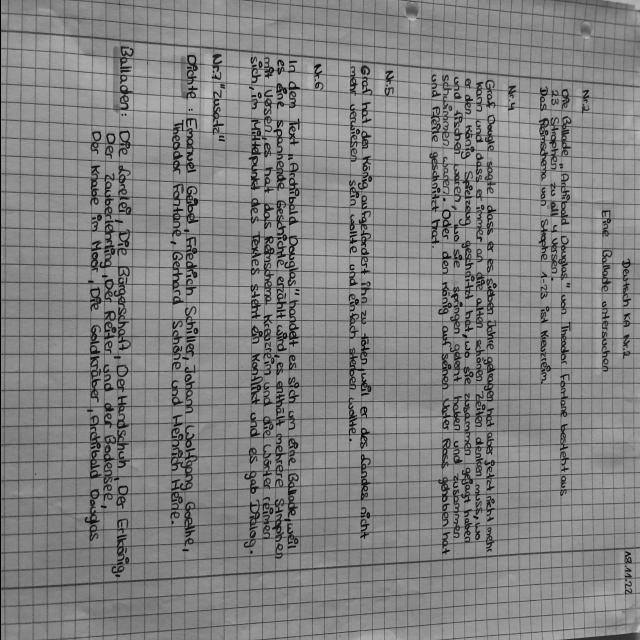 Deutsch KA Nr.2 18.11.22
Eine Ballade untersuchen
Nr.2
Die Ballade „Archibald Douglas" von Theodor Fontane besteht aus
23 Strophen zu all 4 Versen.
Das Reimschema von Strophe 1-23 ist Kreuzreim.
Nr.4
Graf Douglas sagte dass er es sieben Jahre getragen hat aber jetzt nicht mehr
kann und dass er immer an die alten schönen Zeiten denken muss, wo
er den König Spielzeug geschnitzt hat, wo sie zusammen gejagt haben
und fischen waren, wo sie springen gelernt haben und zusammen
schwimmen waren. Oder den König auf seinen Vater Ross gehoben hat
und Pfeile geschnitzt hat.
Nr.5
Graf hat den König aufgefordert ihn zu töten, weil er des Landes nicht
mehr verwiesen sein wollte und einfach sterben wollte.
Nr.6
In dem Text „Archibald Douglas" handelt es sich um eine Ballade, weil
es eine spannende Geschichte erzählt wird, es enthält mehrere Strophen
mit Versen, es hat das Reimschema Kreuzreim und die Wörter reimen
sich, im Mittelpunkt des Textes steht ein Konflikt und es gab Dialog.
Nr.7 "Zusatz"
Dichte: Emanuel Geibel, Friedrich Schiller, Johann Wolfgang Goethe,
Theodor Fontane, Gerhard Schöne und Heinrich Heine.
Balladen: Die Lorelei, Die Bürgschaft, Der Handschuh, Der Erlkönig,
Der Zauberlehrling, Der Reiter und der Bodensee,
Der Knabe im Moor, Die Goldgräber, Archibald Douglas